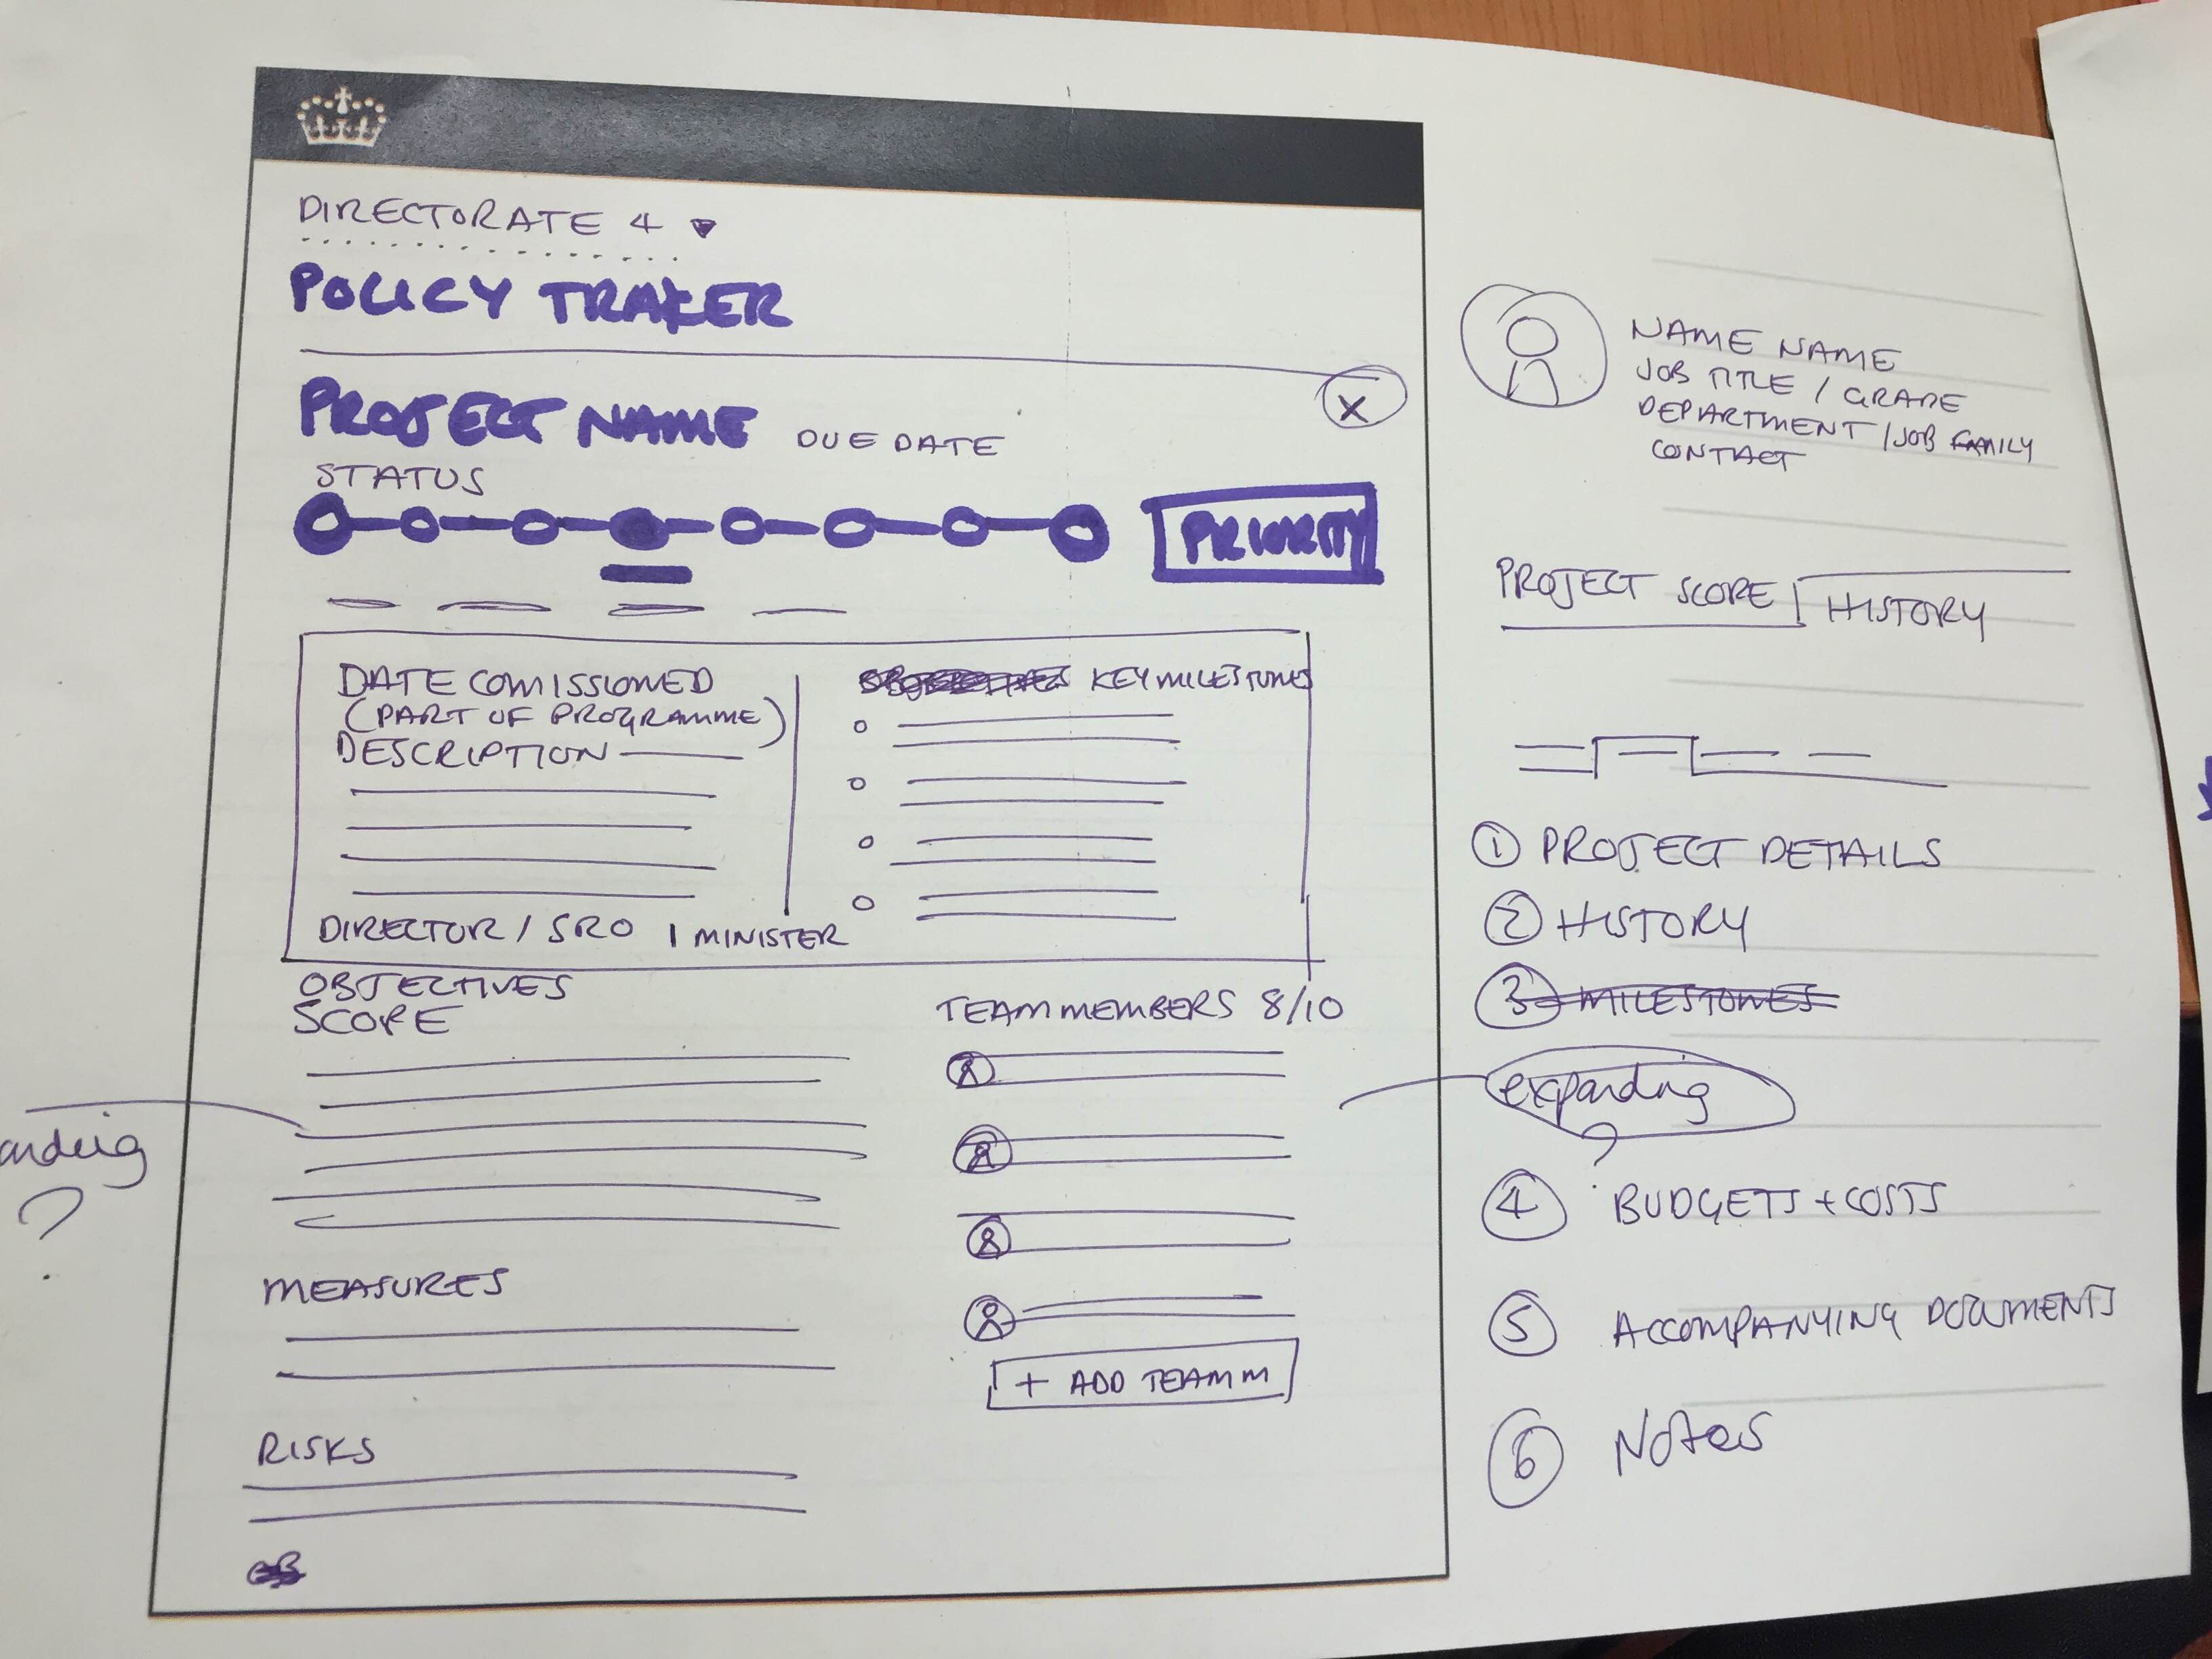 DIRECTORATE 4
POLICY TRAKER
PROJECT NAME DUE DATE
X
STATUS
PRIORITY
DATE COMISSIONED
(PART OF PROGRAMME)
DESCRIPTION
KEY MILESTONES
DIRECTOR / SRO | MINISTER
OBJECTIVES
SCOPE
MEASURES
RISKS
TEAM MEMBERS 8/10
+ ADD TEAM M
anding
?
NAME NAME
JOB TITLE / GRADE
DEPARTMENT / JOB FAMILY
CONTACT
PROJECT SCOPE | HISTORY
1 PROJECT DETAILS
2 HISTORY
3 MILESTONES
expanding
?
4 BUDGETS + COSTS
5 ACCOMPANYING DOCUMENTS
6 Notes